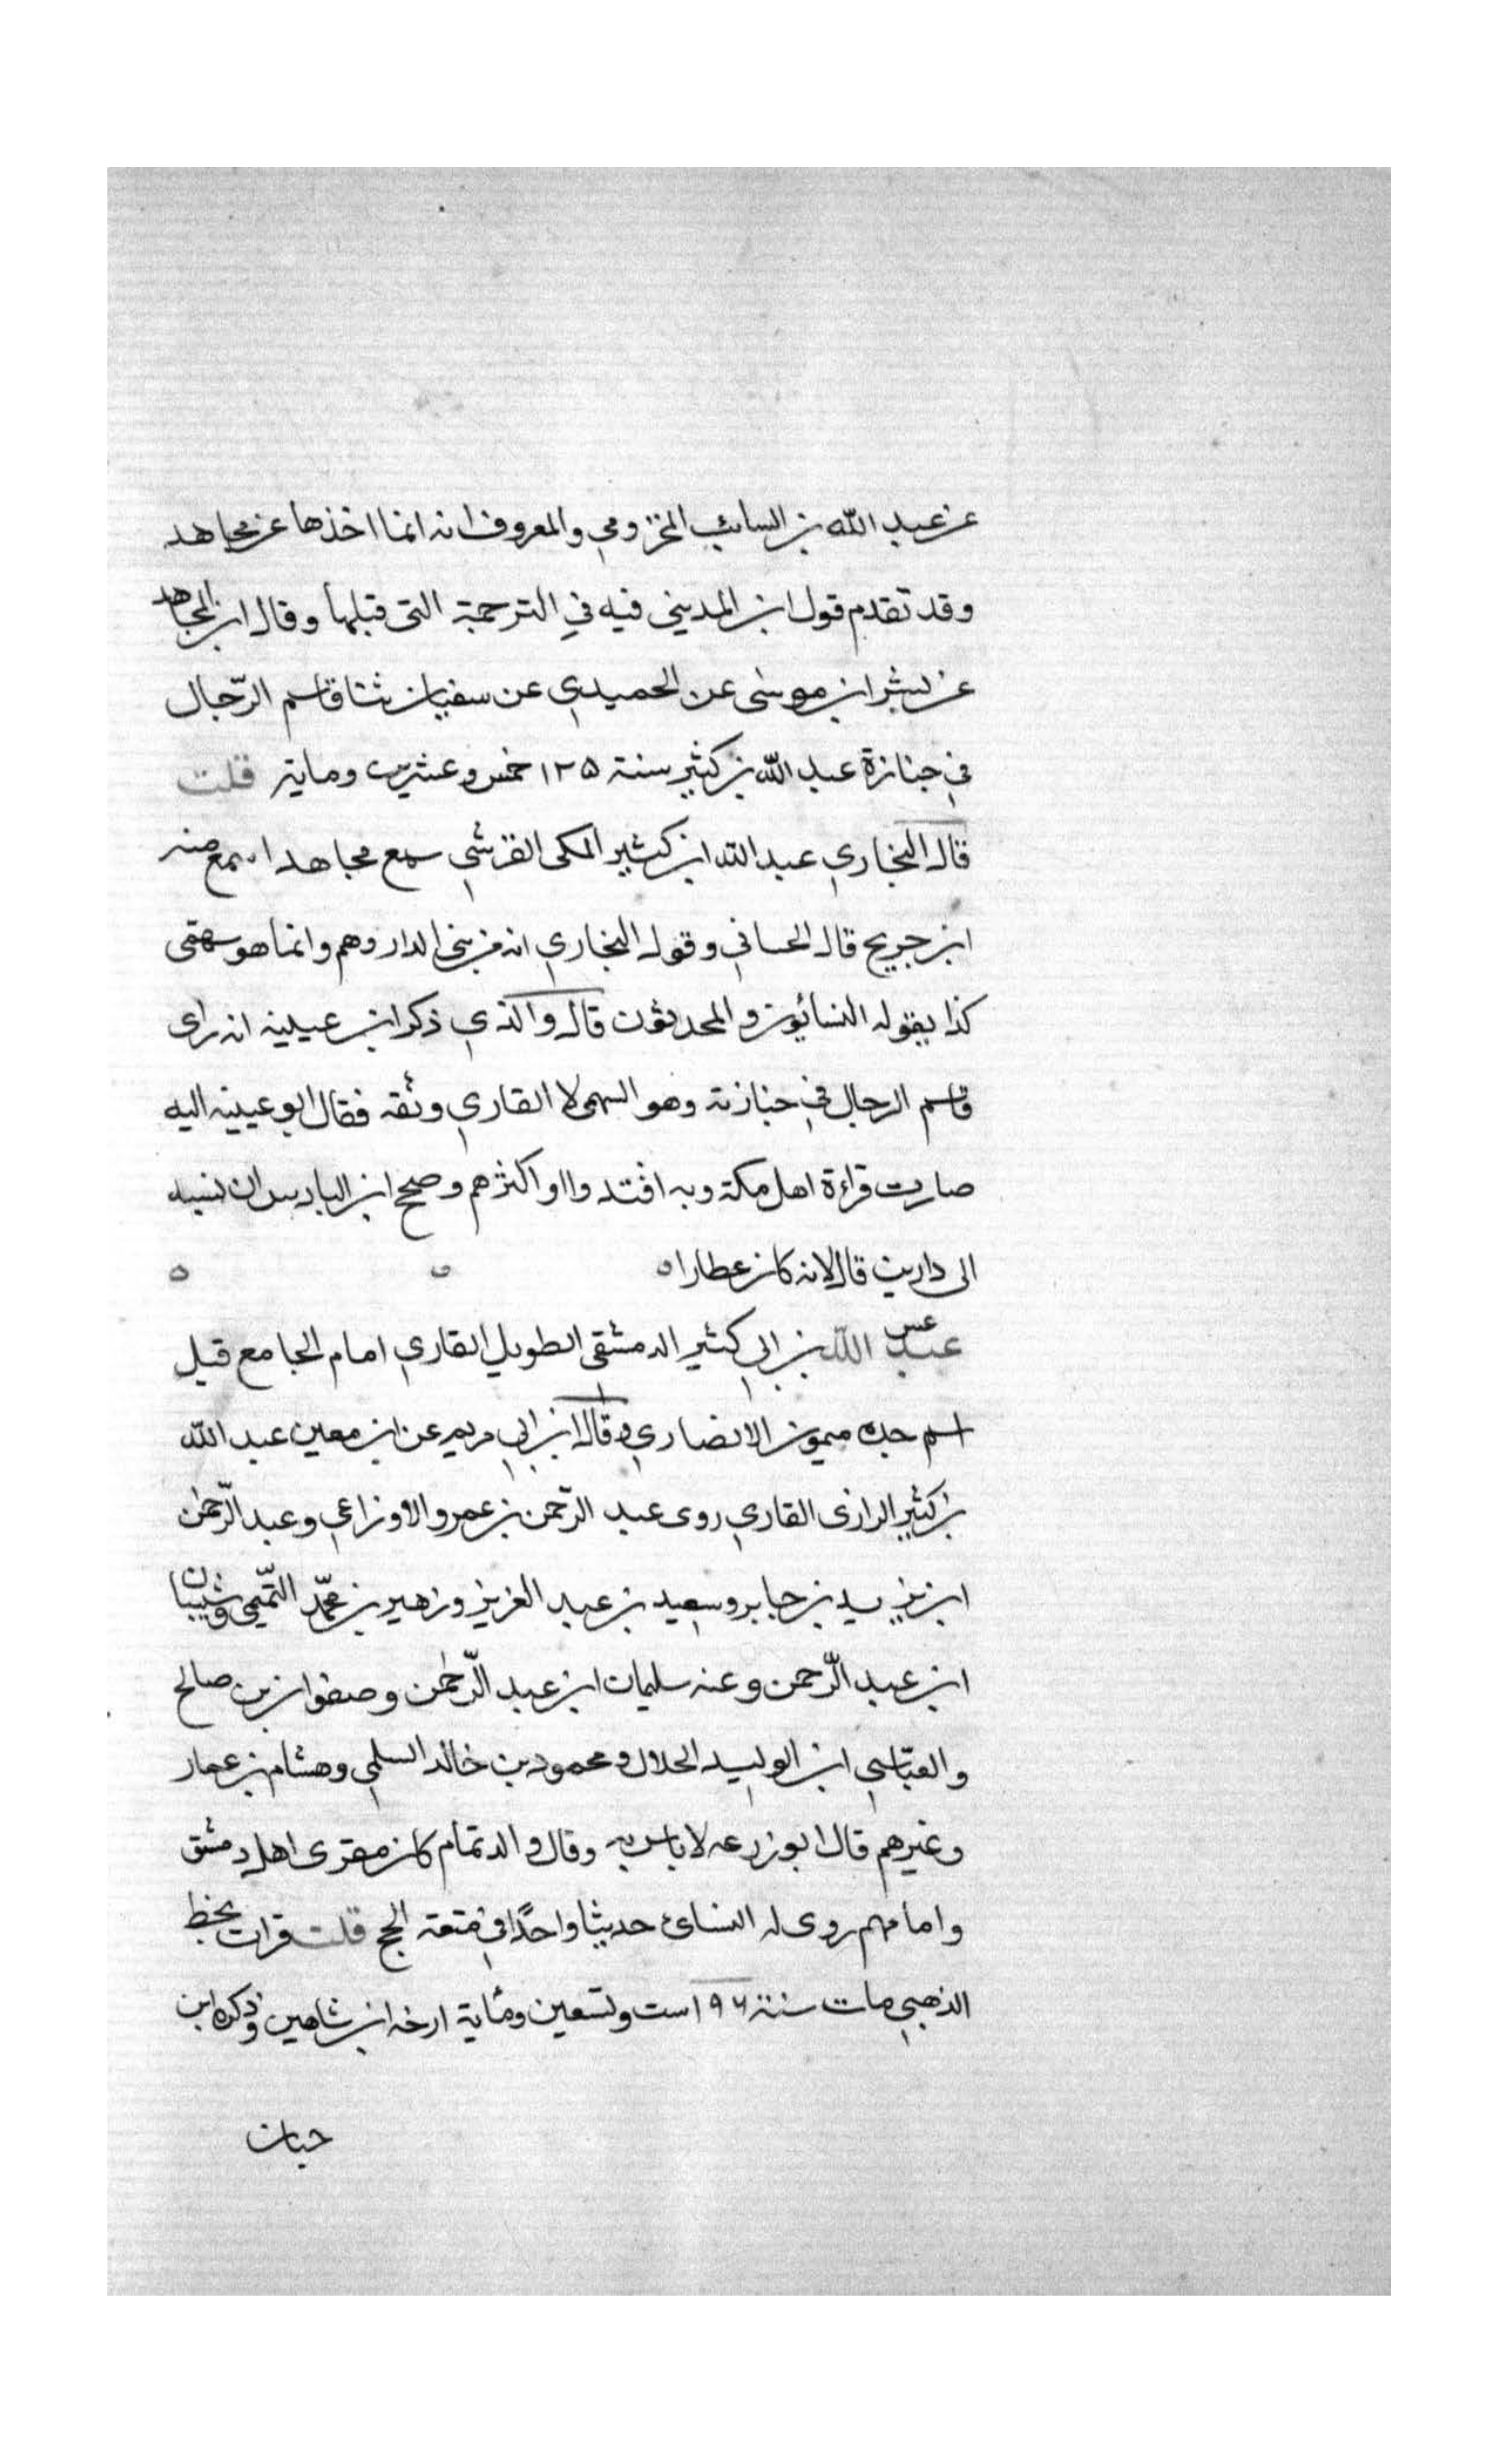 عن عبد الله بن السائب المخزومي والمعروف انه انما اخذها عن مجاهد
وقد تقدم قول ابن المديني فيه في الترجمة التي قبلها وقال ابن المجاهد
عن بشر ابن موسى عن الحميدي عن سفيان ثنا قاسم الرّحال
في جنازة عبد الله بن كثير سنة ١٢٥ خمس وعشرين وماية قلت
قال البخاري عبد الله ابن كثير المكى القرشي سمع مجاهدا سمع منه
ابن جريج قال الحساني وقول البخاري انه من بنى الدار وهم وانما هو سهمى
كذا يقوله النسائون والمحدثون قال والذي ذكر ابن عيينه انه راى
قاسم الرحال في جنازته وهو السهمى لا القاري وثقه فقال ابو عيينه اليه
صارت قراءة اهل مكة وبه اقتدوا او اكثرهم وصحح ابن البادس ان نسبه
الى دارين قال لانه كان عطارا ه ه ه
عس
عبد الله بن ابي كثير الدمشقى الطويل القاري امام الجامع قيل
اسم جده ميمون الانصاري وقال ابن ابي مريم عن ابن معين عبد الله
بن كثير الرازى القاري روى عبد الرّحمن بن عمرو الاوزاعي وعبد الرّحمٰن
ابن يزيد بن جابر وسعيد بن عبد العزيز وزهير بن محمّد التّميمى وشيبان
ابن عبد الرّحمن وعنه سليمان ابن عبد الرّحمٰن وصفوان بن صالح
والعبّاسي ابن الوليد الحلال ومحمود بن خالد السلمي وهشام بن عمار
وغيرهم قال ابو زرعه لا باس به وقال والد تمام كان مقرى اهل دمشق
وامامهم روى له النسائ حديثا واحدًا في متعة الحج قلت قرات بخط
الذهبي مات سنة ١٩٦ ست وتسعين ومئاية ارخه ابن شاهين وذكره ابن
حبان